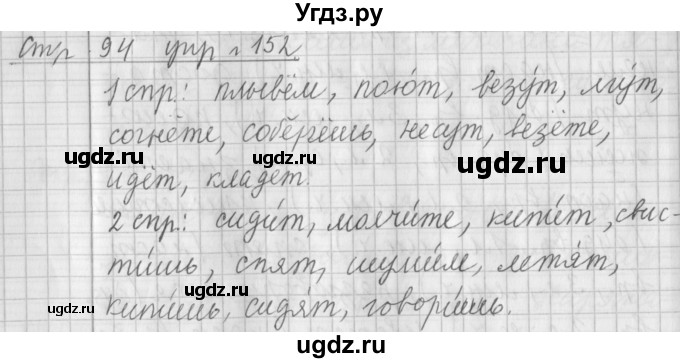 Угдз.ру
Стр 94 упр № 152
1 спр.: плывём, пою́т, везу́т, лгу́т,
согнёте, сбережёшь, несут, везёте,
идёт, кладёт.
2 спр.: сиди́т, молчи́те, кипи́т, свис-
ти́шь, спят, шуми́м, летя́т,
кипи́шь, сидя́т, говори́шь.
ugdz.ru
ugdz.ru
ugdz.ru
ugdz.ru
ugdz.ru
ugdz.ru
ugdz.ru
ugdz.ru